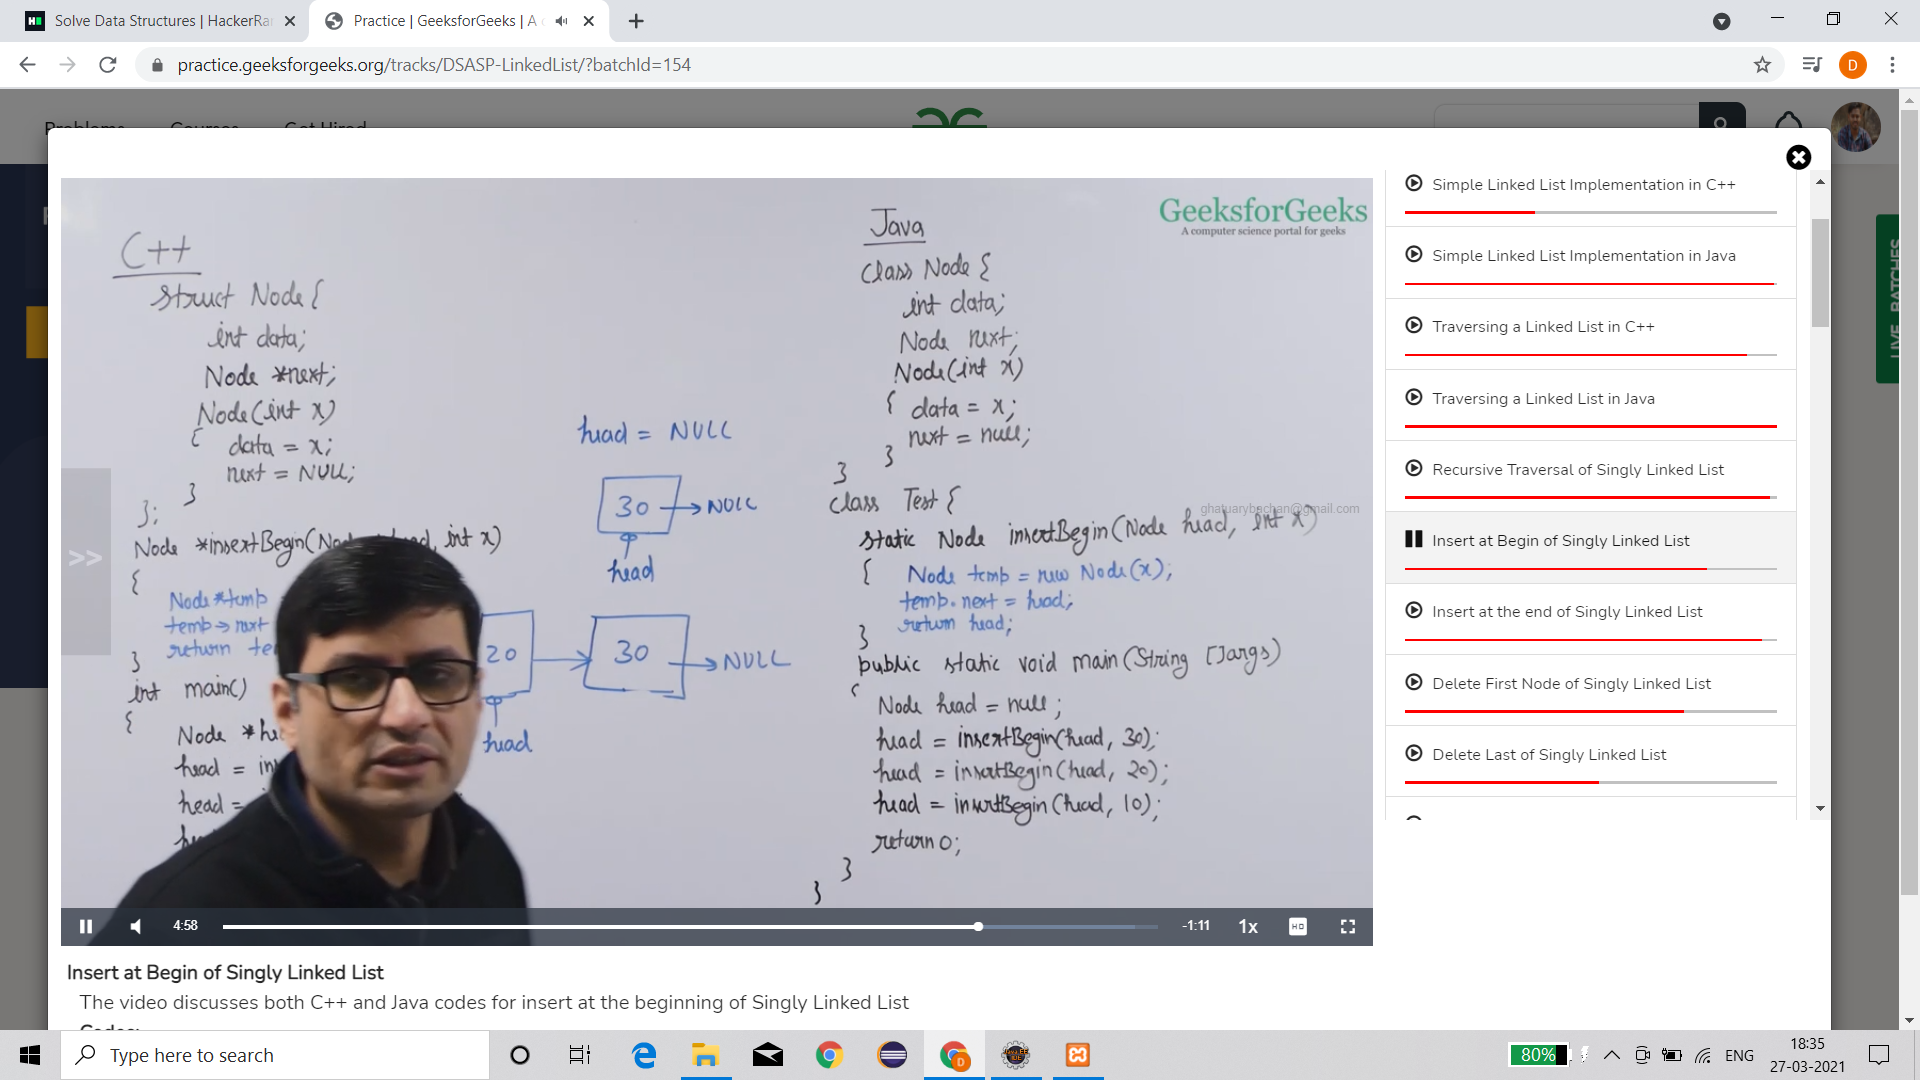 Solve Data Structures | HackerRa
Practice | GeeksforGeeks | A
practice.geeksforgeeks.org/tracks/DSASP-LinkedList/?batchId=154
D
Problems Courses Get Hired
LIVE BATCHES
GeeksforGeeks
A computer science portal for geeks
C++
Struct Node {
int data;
Node *next;
Node(int x)
{ data = x;
next = NULL;
}
};
Node *insertBegin( int x)
{
Node *temp
temp→next
return te
}
int main()
{
Node *he
head = in
head =
head = NULL
30 → NULL
head
20 30 → NULL
head
Java
class Node {
int data;
Node next;
Node(int x)
{ data = x;
next = null;
}
}
class Test {
ghatuarybachan@gmail.com
static Node insertBegin(Node head, int x)
{ Node temp = new Node(x);
temp.next = head;
return head;
}
public static void main(String []args)
{
Node head = null;
head = insertBegin(head, 30);
head = insertBegin(head, 20);
head = insertBegin(head, 10);
return 0;
}
}
>>
4:58
-1:11
1x
HD
Simple Linked List Implementation in C++
Simple Linked List Implementation in Java
Traversing a Linked List in C++
Traversing a Linked List in Java
Recursive Traversal of Singly Linked List
Insert at Begin of Singly Linked List
Insert at the end of Singly Linked List
Delete First Node of Singly Linked List
Delete Last of Singly Linked List
Insert at Begin of Singly Linked List
The video discusses both C++ and Java codes for insert at the beginning of Singly Linked List
Codes:
Type here to search
80%
ENG
18:35
27-03-2021